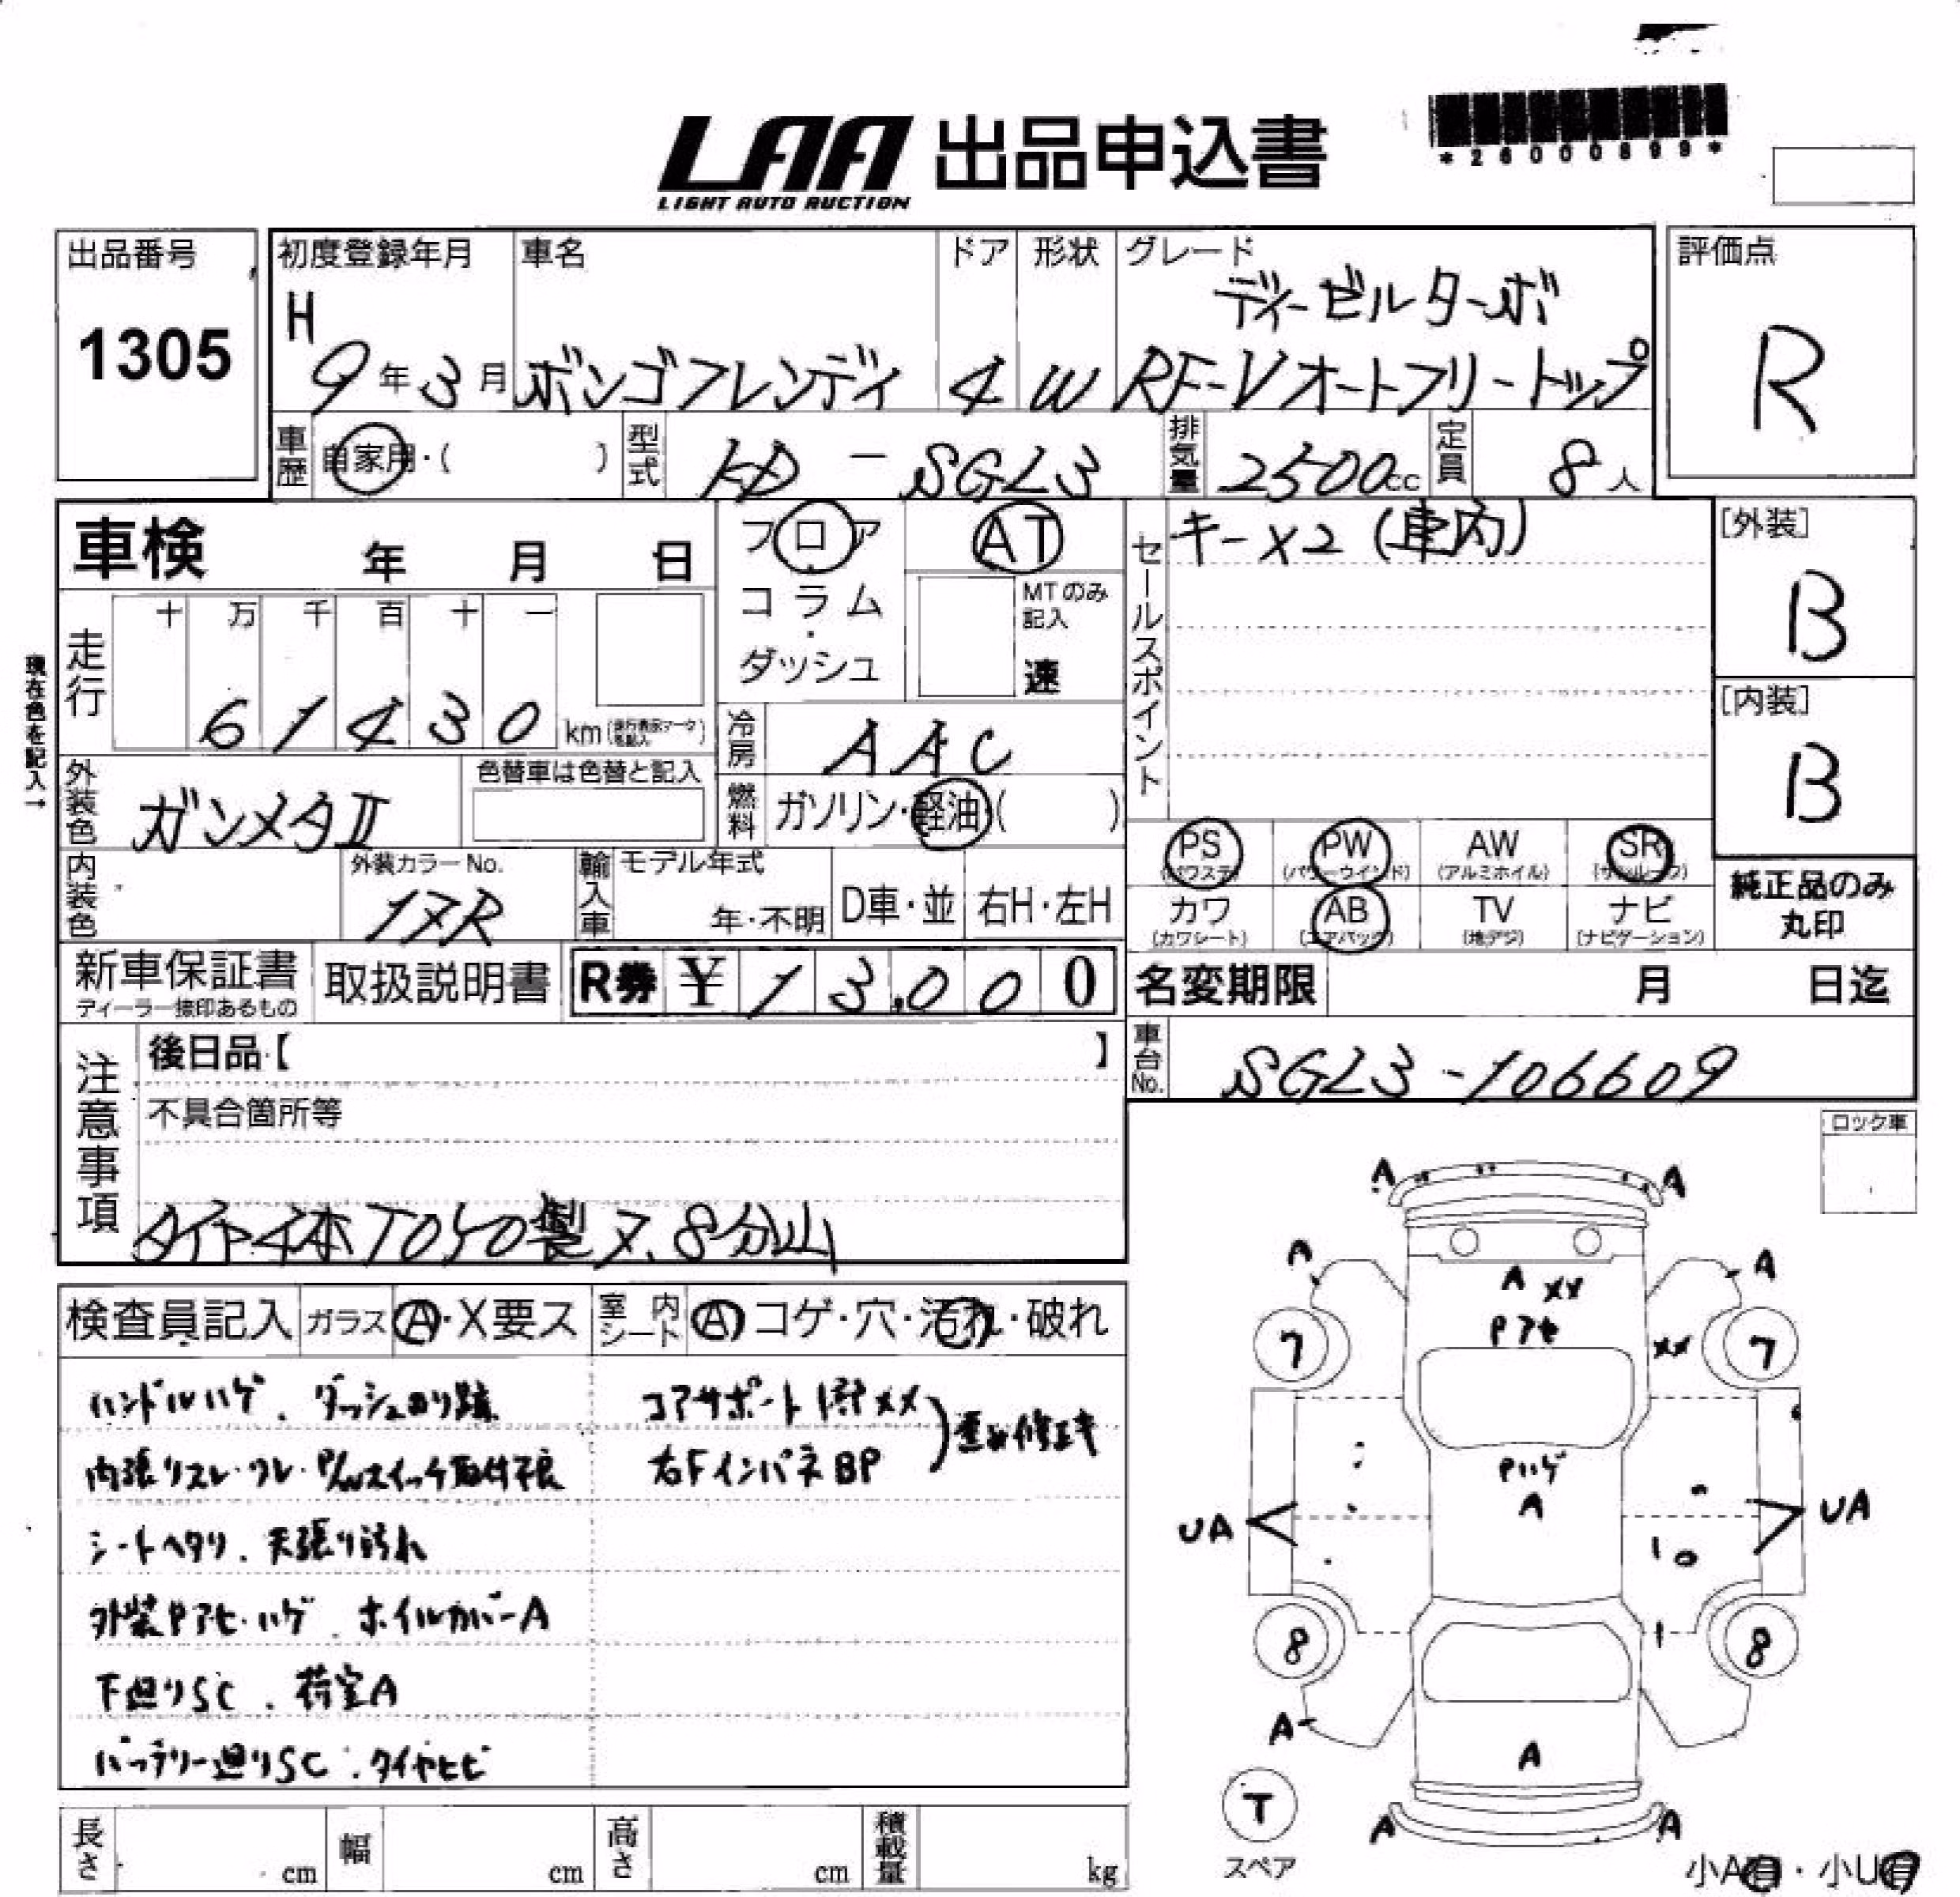 *26000899*
LAA 出品申込書
LIGHT AUTO AUCTION
出品番号
1305
初度登録年月
H
9年3月
車名
ボンゴフレンディ
ドア
4
形状
W
グレード
ディーゼルターボ
RF-Vオートフリートップ
評価点
R
車歴 自家用・( )
型式 KD - SGL3
排気量 2500cc
定員 8人
車検 年 月 日
フロア
コラム
・
ダッシュ
AT
MTのみ
記入
速
セールスポイント
キー×2 (車内)
[外装]
B
[内装]
B
現在色を記入→
走行
十 万 千 百 十 一
6 1 4 3 0 km
冷房 AAC
外装色 ガンメタⅡ
色替車は色替と記入
燃料 ガソリン・軽油・( )
PS (パワステ)
PW (パワーウインド)
AW (アルミホイル)
SR (サンルーフ)
カワ (カワシート)
AB (エアバック)
TV (地デジ)
ナビ (ナビゲーション)
純正品のみ
丸印
内装色
外装カラーNo.
17R
輸入車
モデル年式
年・不明
D車・並
右H・左H
新車保証書
ディーラー捺印あるもの
取扱説明書
R券 ¥ 13,000
名変期限 月 日迄
車台No. SGL3-106609
注意事項
後日品【 】
不具合箇所等
タイヤ4本TOYO製7、8分山
ロック車
検査員記入
ガラス A・X要ス
室内シート A コゲ・穴・汚れ・破れ
ハンドルハゲ、ダッシュのり跡
内張りスレ・ワレ・P/Wスイッチ取付不良
シートヘタリ、天張り汚れ
外装Pアセ・ハゲ、ホイルカバーA
下廻りSC、荷室A
バッテリー廻りSC、タイヤヒビ
コアサポート1部××
右FインパネBP
歪み修正キ
A A
A A
A ××
Pアセ
7 ×× 7
Pハゲ
A
UA UA
8 8
A
A
T
スペア
A A
小A有・小U有
長さ cm
幅 cm
高さ cm
積載量 kg